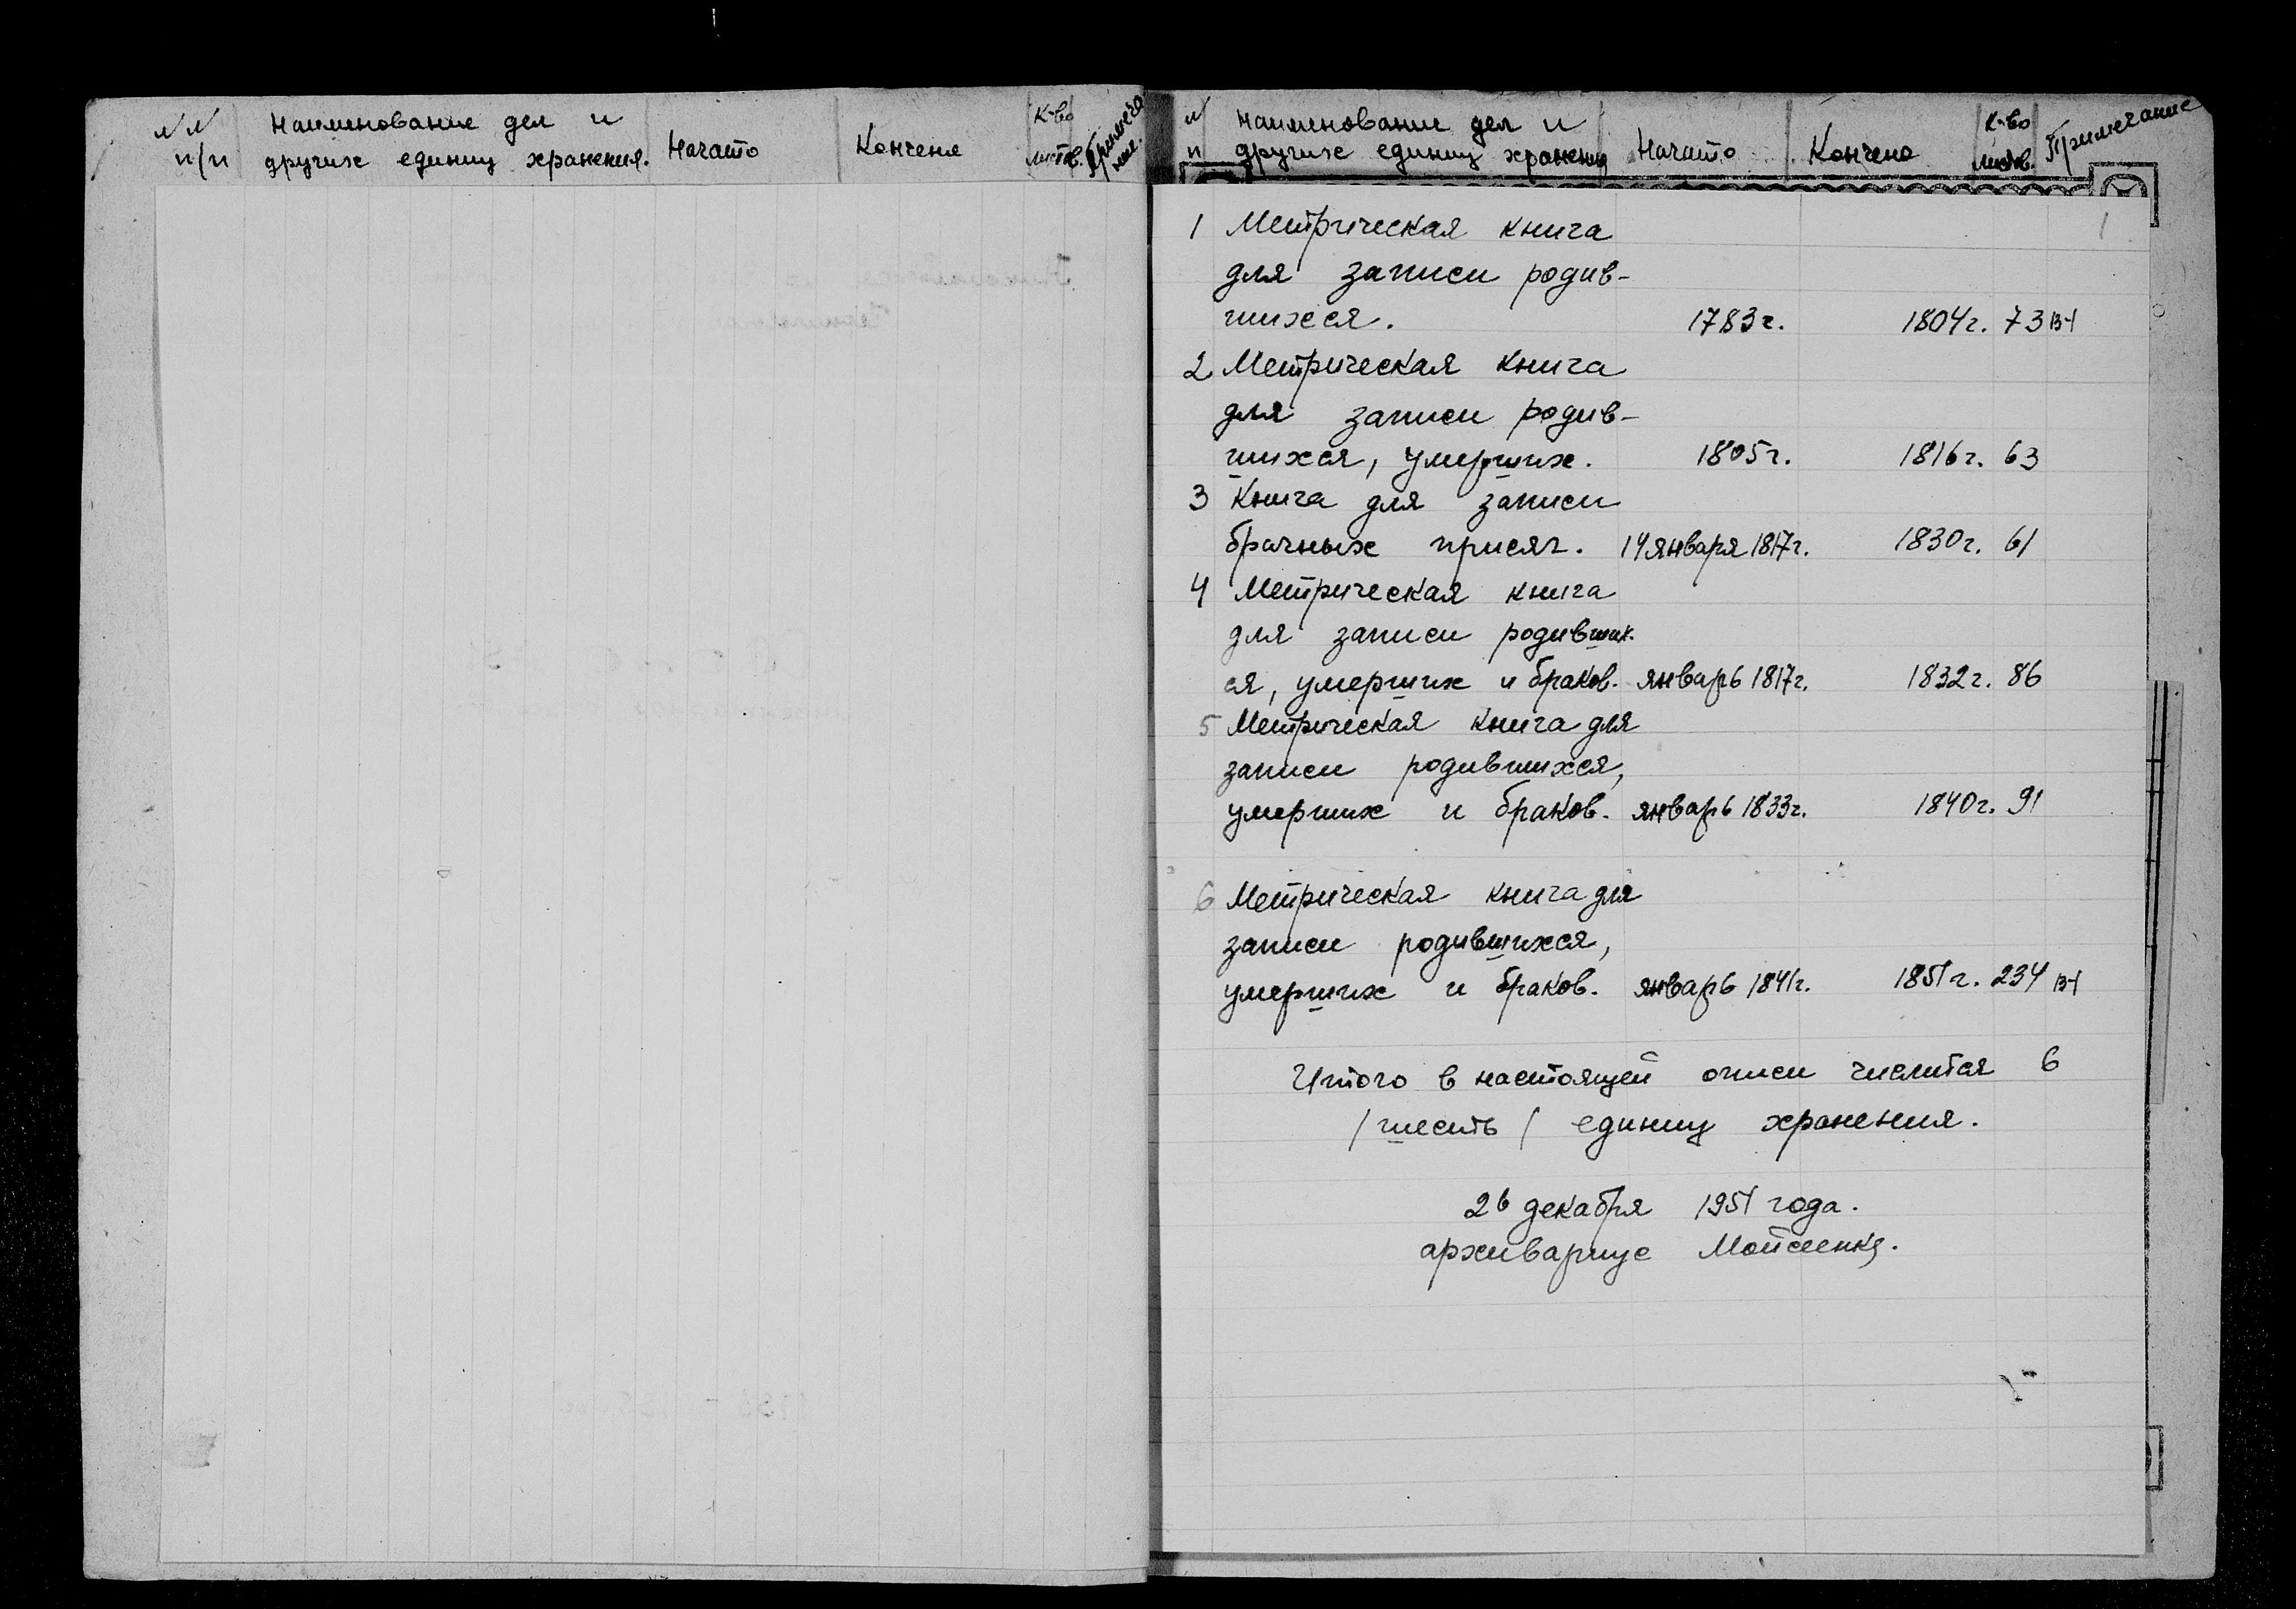 №№ п/п
Наименование дел и
других единиц хранения.
Начато
Кончено
К-во
листов.
Примеча
ние.
№
п
Наименование дел и
других единиц хранения
Начато
Кончено
К-во
листов.
Примечание
1
1 Метрическая книга
для записи родив-
шихся. 1783г. 1804г. 73
2 Метрическая книга
для записи родив-
шихся, умерших. 1805г. 1816г. 63
3 Книга для записи
брачных присяг. 14 января 1817г. 1830г. 61
4 Метрическая книга
для записи родивших-
ся, умерших и браков. январь 1817г. 1832г. 86
5 Метрическая книга для
записи родившихся,
умерших и браков. январь 1833г. 1840г. 91
6 Метрическая книга для
записи родившихся,
умерших и браков. январь 1841г. 1851г. 234
Итого в настоящей описи числится 6
/шесть/ единиц хранения.
26 декабря 1951 года.
архивариус